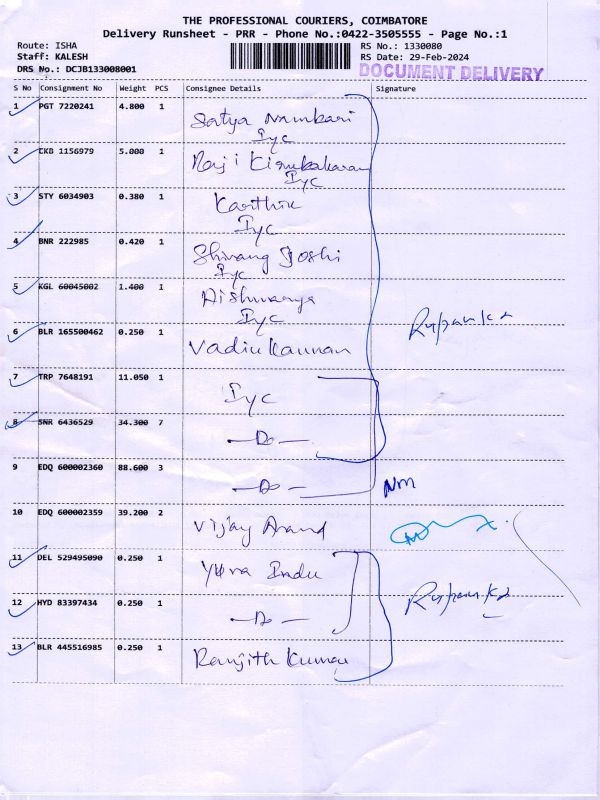 THE PROFESSIONAL COURIERS, COIMBATORE
Delivery Runsheet - PRR - Phone No.:0422-3505555 - Page No.:1
Route: ISHA
Staff: KALESH
DRS No.: DCJB133008001
RS No.: 1330080
RS Date: 29-Feb-2024
DOCUMENT DELIVERY
S No Consignment No Weight PCS Consignee Details Signature
1 PGT 7220241 4.800 1 Satya Nambari
Iyc
2 CKB 1156979 5.000 1 Raji Kirubakaran
Iyc
3 STY 6034903 0.380 1 Karthik
Iyc
4 BNR 222985 0.420 1 Shivang Joshi
Iyc
5 KGL 60045002 1.400 1 Aishwarya
Iyc
6 BLR 165500462 0.250 1 Vadiukannan
7 TRP 7648191 11.050 1 Iyc
8 SNR 6436529 34.300 7 —Do—
9 EDQ 600002360 88.600 3 —Do—
10 EDQ 600002359 39.200 2 Vijay Anand
11 DEL 529495090 0.250 1 Yuva Indu
12 HYD 83397434 0.250 1 —Do—
13 BLR 445516985 0.250 1 Ranjith Kumar